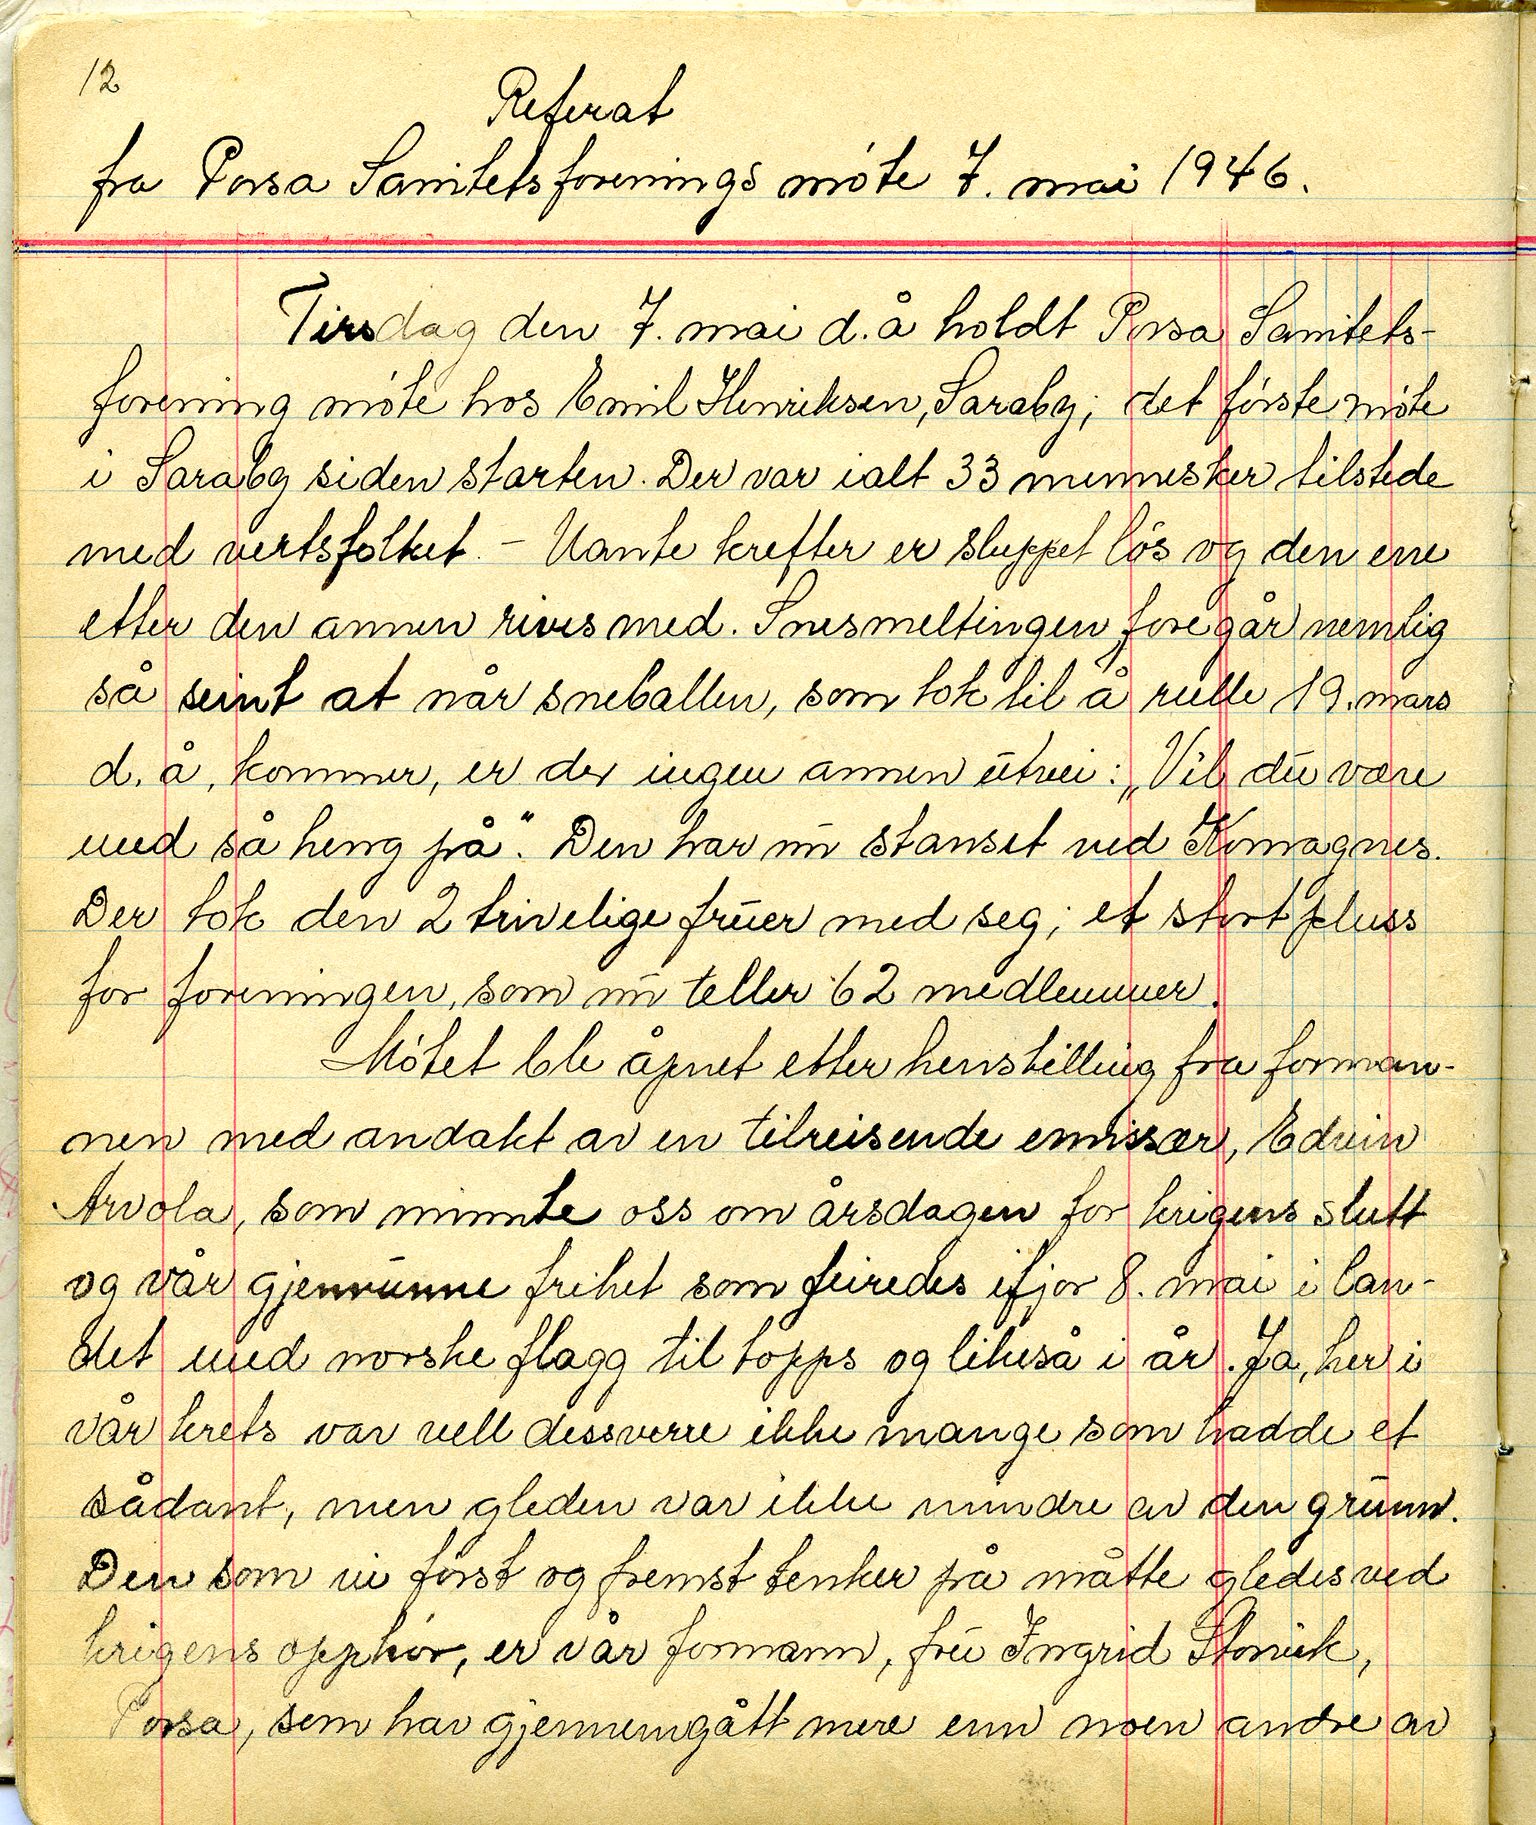 12
Referat
fra Porsa Sanitetsforenings møte 7. mai 1946.
Tirsdag den 7. mai d.å holdt Porsa Sanitets-
forening møte hos Emil Henriksen, Saraby; det første møte
i Saraby siden starten. Der var ialt 33 mennesker tilstede
med vertsfolket. – Uante krefter er sluppet løs og den ene
etter den annen rives med. Snesmeltingen foregår nemlig
så seint at når sneballen, som tok til å rulle 19. mars
d. å, kommer, er der ingen annen utvei: „Vil du være
med så heng på". Den har nu stanset ved Komagnes.
Der tok den 2 trivelige fruer med seg; et stort pluss
for foreningen, som nu teller 62 medlemmer.
Møtet ble åpnet etter henstilling fra forman-
nen med andakt av en tilreisende emissær, Edvin
Arvola, som minnte oss om årsdagen for krigens slutt
og vår gjenvunne frihet som feiredes ifjor 8. mai i lan-
det med norske flagg til topps og likeså i år. Ja, her i
vår krets var vell dessverre ikke mange som hadde et
sådant, men gleden var ikke mindre av den grunn.
Den som vi først og fremst tenker på måtte gledes ved
krigens opphør, er vår formann, fru Ingrid
Porsa, som har gjennemgått mere enn noen andre av